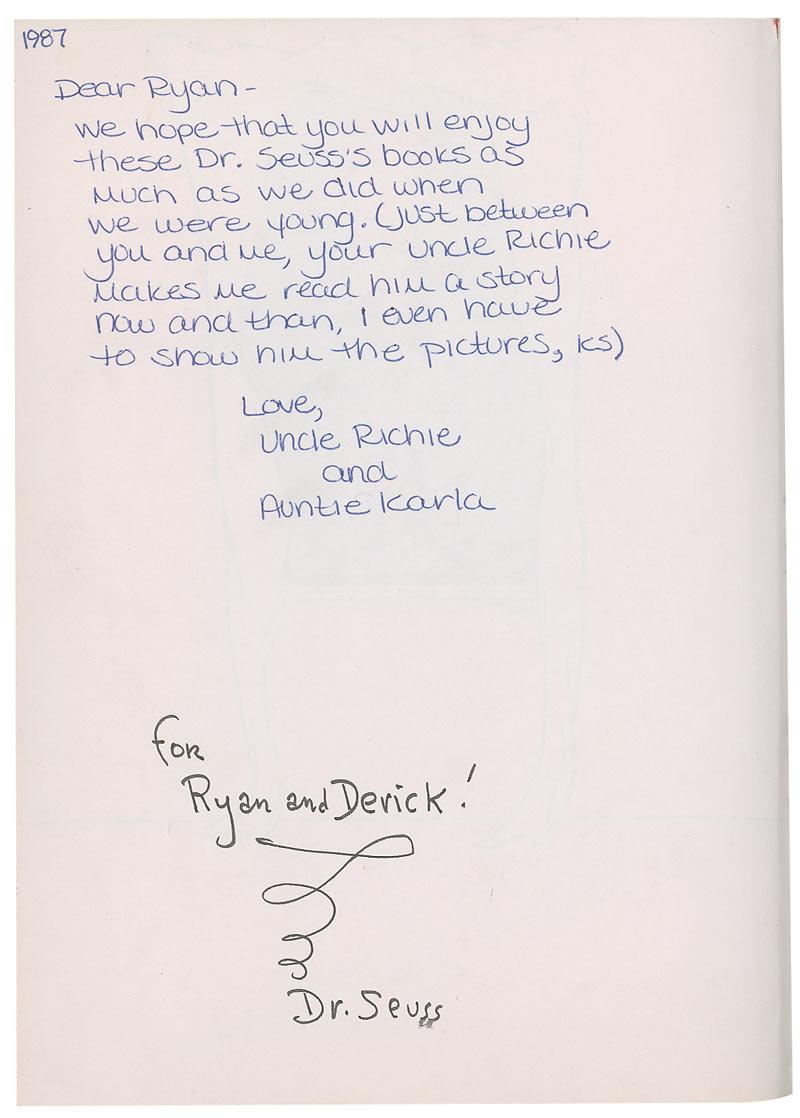 1987
Dear Ryan-
we hope that you will enjoy
these Dr. Seuss's books as
much as we did when
we were young. (Just between
you and me, your uncle Richie
makes me read him a story
now and than, I even have
to show him the pictures, ks)
Love,
Uncle Richie
and
Auntie Karla
for
Ryan and Derick!
Dr. Seuss